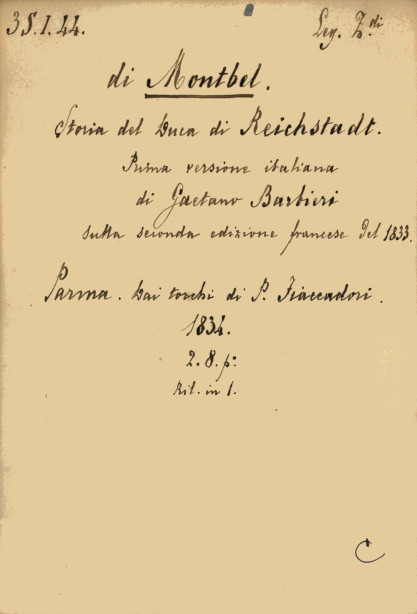 35.I.44. Leg. Z.di
di Montbel.
Storia del Duca di Reichstadt.
Prima versione italiana
di Gaetano Barbieri
sulla seconda edizione francese del 1833.
Parma. Dai torchi di P. Fiaccadori.
1834.
2. 8. p:
Ril. in 1.
C